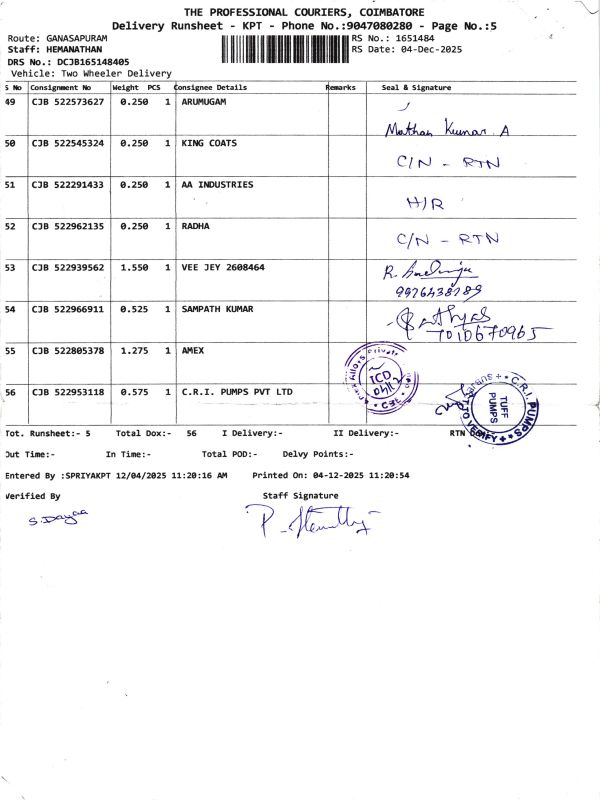 THE PROFESSIONAL COURIERS, COIMBATORE
Delivery Runsheet - KPT - Phone No.:9047080280 - Page No.:5
Route: GANASAPURAM RS No.: 1651484
Staff: HEMANATHAN RS Date: 04-Dec-2025
DRS No.: DCJB165148405
Vehicle: Two Wheeler Delivery
S No Consignment No Weight PCS Consignee Details Remarks Seal & Signature
49 CJB 522573627 0.250 1 ARUMUGAM
Mathan Kumar A
50 CJB 522545324 0.250 1 KING COATS
C/N - RTN
51 CJB 522291433 0.250 1 AA INDUSTRIES
H/R
52 CJB 522962135 0.250 1 RADHA
C/N - RTN
53 CJB 522939562 1.550 1 VEE JEY 2608464
R.
54 CJB 522966911 0.525 1 SAMPATH KUMAR
7010670965
55 CJB 522805378 1.275 1 AMEX
Alloys Private
ICD
56 CJB 522953118 0.575 1 C.R.I. PUMPS PVT LTD
C.R.I. PUMPS
TUFF
PUMPS
Tot. Runsheet:- 5 Total Dox:- 56 I Delivery:- II Delivery:- RTN
Out Time:- In Time:- Total POD:- Delvy Points:-
Entered By :SPRIYAKPT 12/04/2025 11:20:16 AM Printed On: 04-12-2025 11:20:54
Verified By Staff Signature
S. Dayaa